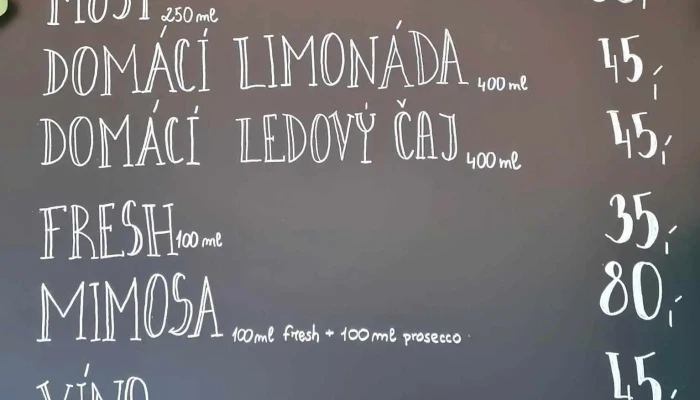 MOŠT 250 ml
DOMÁCÍ LIMONÁDA 400 ml 45,-
DOMÁCÍ LEDOVÝ ČAJ 400 ml 45,-
FRESH 100 ml 35,-
MIMOSA 100ml fresh + 100 ml prosecco 80,-
VÍNO 45,-